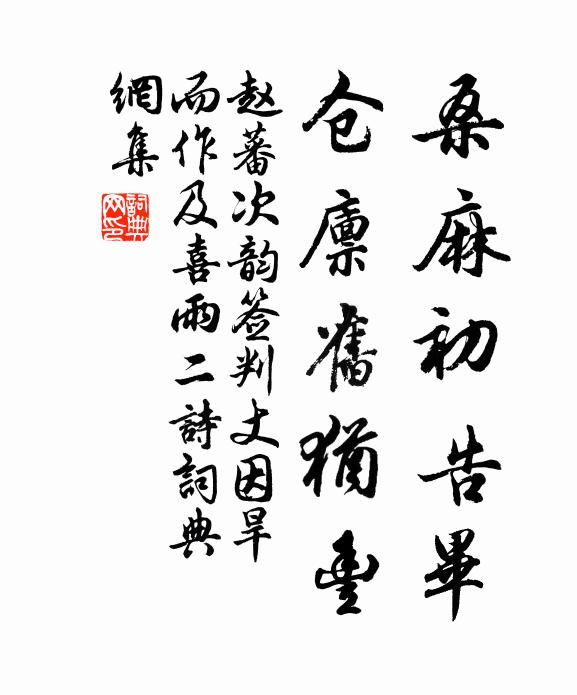 桑麻初告畢
仓廪舊猶豐
赵蕃次韵签判丈因旱
而作及喜雨二詩詞典
網集
詞典
网印